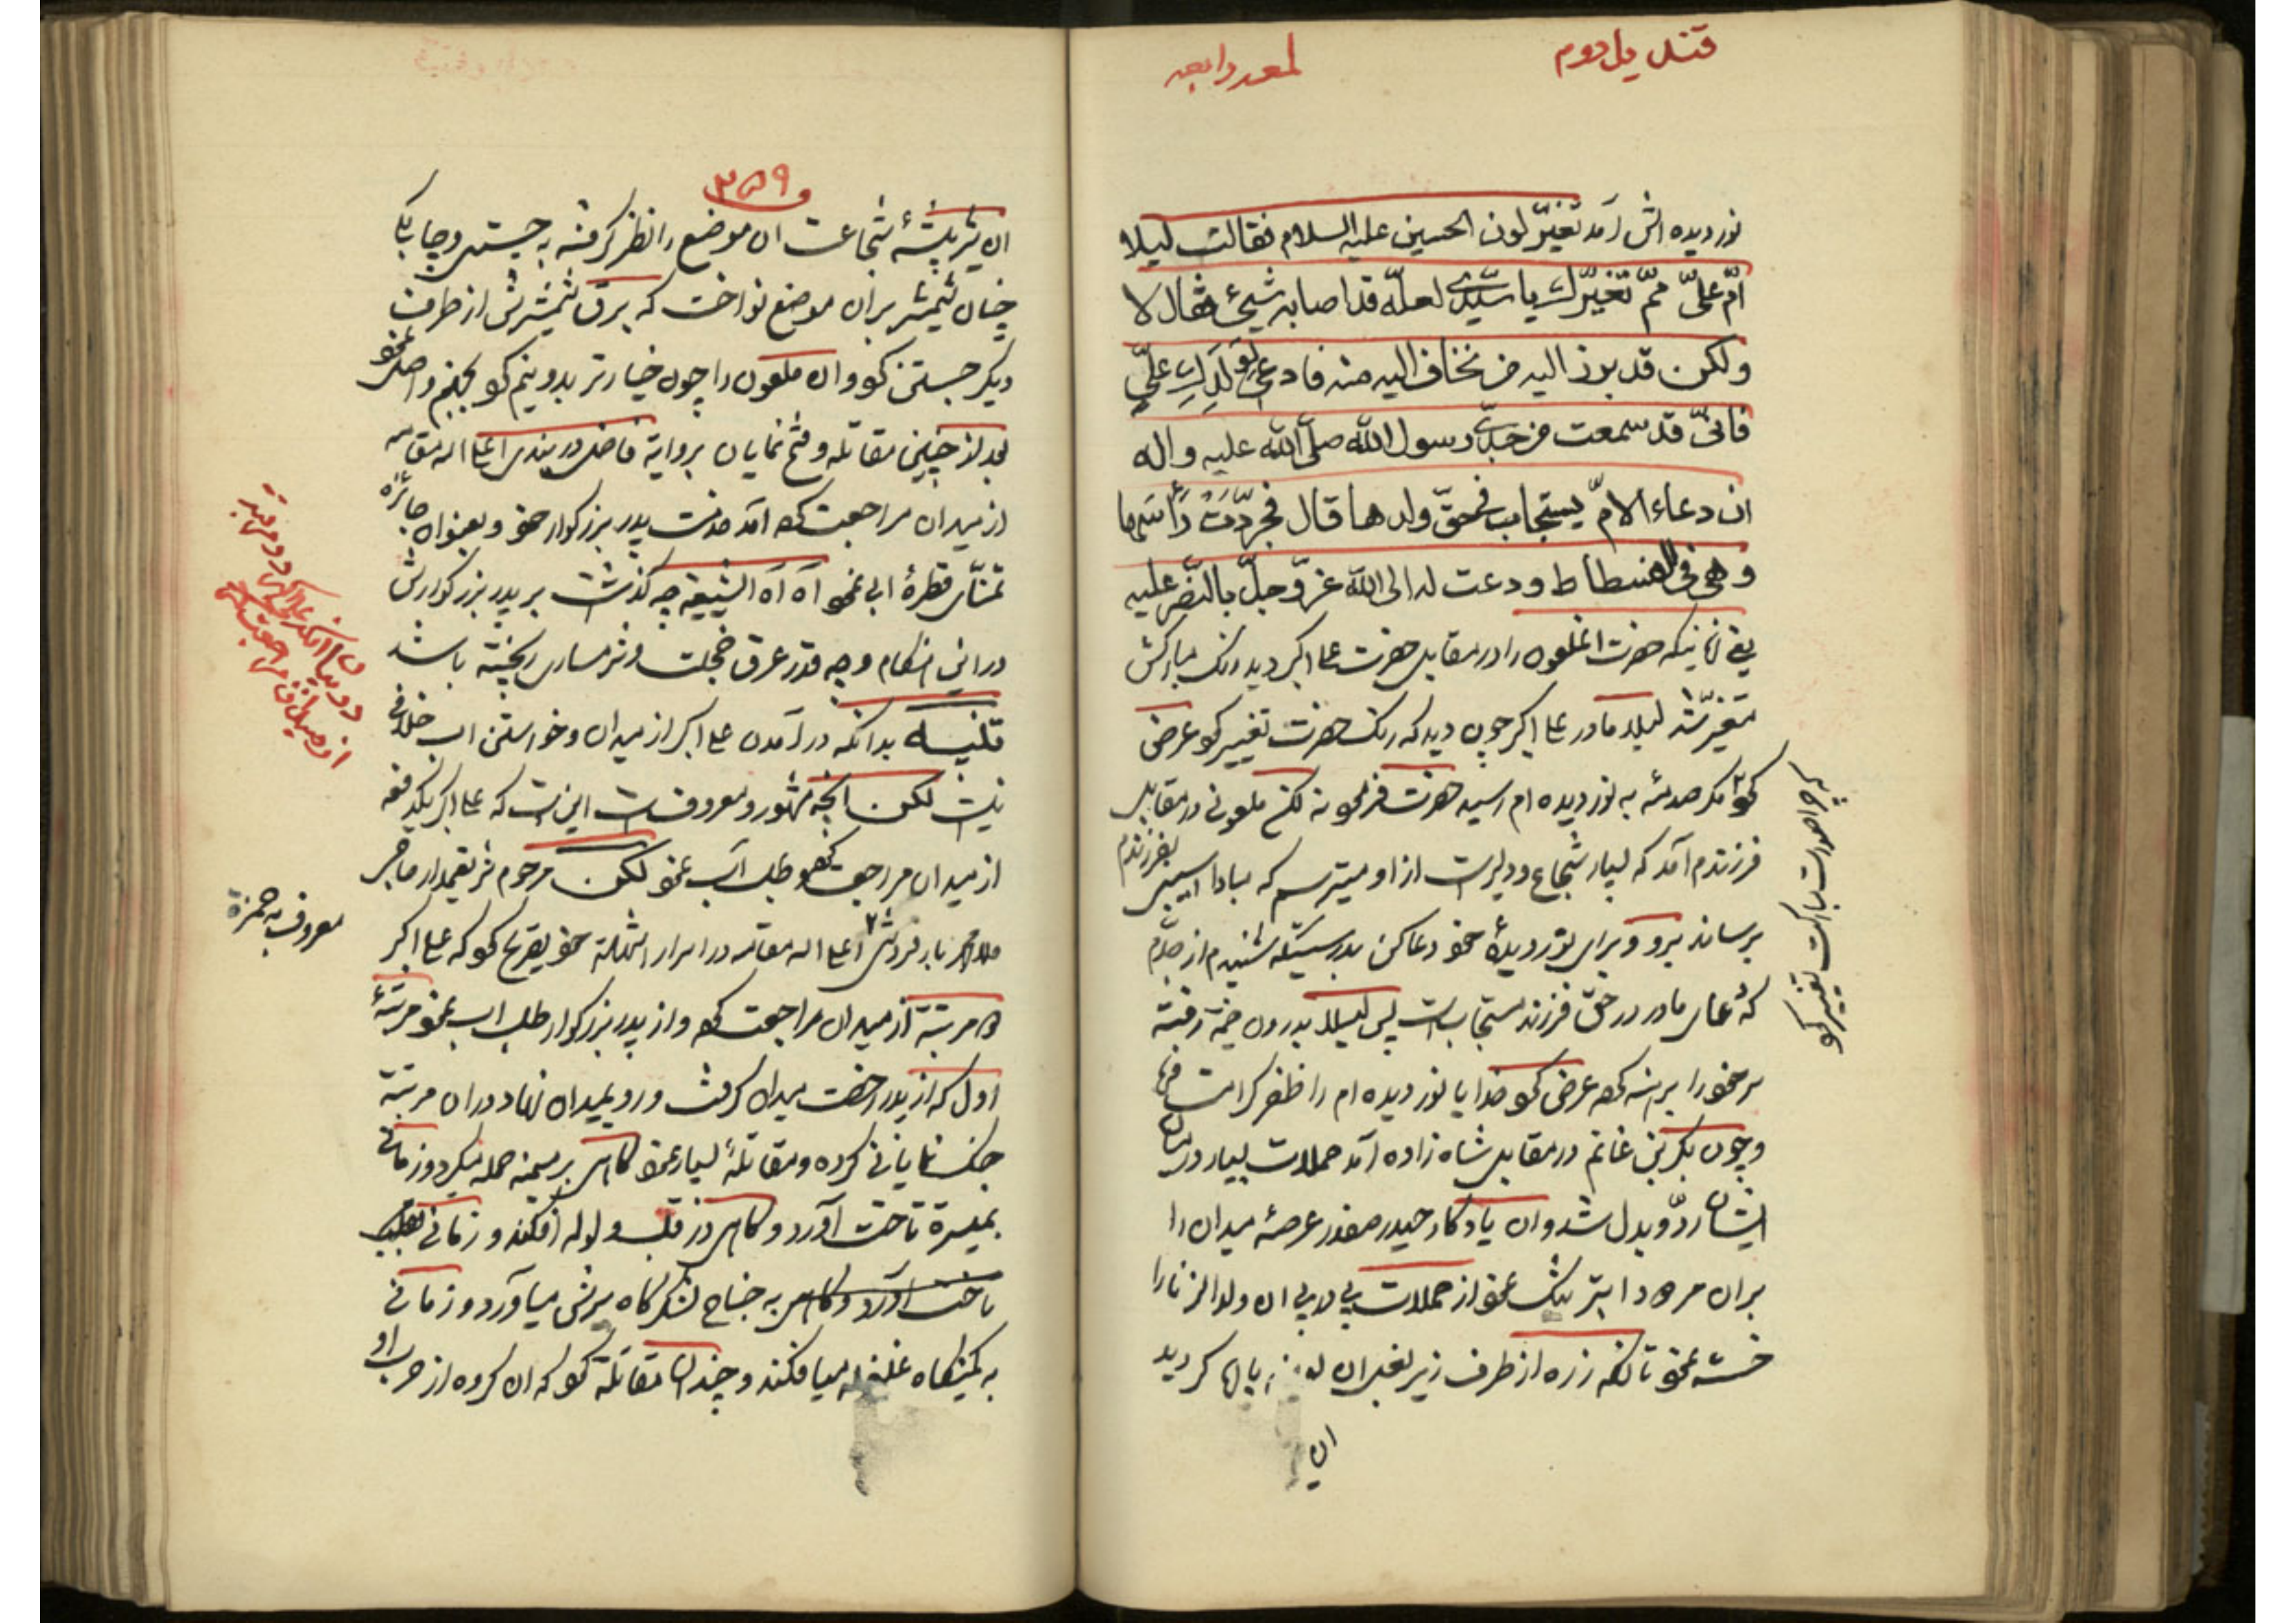 قتل یل دوم
لمعه رابعه
نوردیده اش آمد تغیّر لون الحسین علیه السلام فقالت لیلا
امّ علیّ ممّ تغیّر لک یا سیّدی لعلّه قد اصابه شیئ فقال لا
ولکن قد برز الیه من نخاف الیه منه فادعی لولدک علیّ
فانّی قد سمعت من جدّی رسول الله صلّی الله علیه و اله
ان دعاء الامّ یستجاب فی حقّ ولدها قال فجرّدت رأسها
و هی فی الفسطاط و دعت له الی الله عزّ و جلّ بالنصر علیه
یعنی زمانیکه حضرت انملعون را در مقابل حضرت علی اکبر دید رنک مبارکش
متغیّر شد لیلا مادر علی اکبر چون دید که رنک حضرت تغییر کرد عرض
کرد مکر صدمهٔ به نوردیده ام رسیده حضرت فرمود نه لکن ملعونی در مقابل
فرزندم آمد که بسیار شجاع و دلیرست از او میترسم که مبادا اسیبی بفرزندم
برساند برو و برای نوردیدهٔ خود دعا کن بدرستیکه شنیدم از جدّم
که دعای مادر در حقّ فرزند مستجابست پس لیلا بدرون خیمه رفته
سر خود را برهنه کرده عرض کرد خدایا نوردیده ام را ظفر کرامت فرما
و چون بکر بن غانم در مقابل شاه زاده آمد حملات بسیار در میان
ایشان ردّ و بدل شد و ان یادکار حیدر صفدر عرصهٔ میدان را
بران مردود ابتر تنک نمود از حملات پی در پی ان ولدالزنا را
خسته نمود تا انکه زره از طرف زیر بغل ان نمایان کردید
ان
چرا صورت مبارکت تغییر کرد
و ۳۵۹
ان شیر بیشهٔ شجاعت ان موضع را نظر کرفته به چستی و چابکی
چنان شمشیر بران موضع نواخت که برق شمشیرش از طرف
دیکر جستن کرد و ان ملعون را چون خیار تر بدو نیم کرد بجهنم واصل نمود
بعد از چنین مقاتله و فتح نمایان بروایة فاضل دربندی اعلی اله مقامه
از میدان مراجعت کرده آمد خدمت پدر بزرکوار خود و بعنوان جائزه
تمنّای قطرهٔ ابی نمود آه آه الشیعه چه کذشت بر پدر بزرکوارش
در این هنکام و چه قدر عرق خجلت و شرمساری ریخته باشد
تنبیه بدانکه در آمدن علی اکبر از میدان و خواستن اب خلافی
نیست لکن انچه مشهور و معروفست اینست که علی اکبر یکدفعه
از میدان مراجعت کرده و طلب آب نمود لکن مرحوم شریعتمدار ماهر
ملا محمد بارفروشی اعلی اله مقامه در اسرار الشهادة خود تصریح کرد که علی اکبر
دو مرتبة از میدان مراجعت کرد و از پدر بزرکوار طلب اب نمود مرتبهٔ
اول که از پدر رخصت میدان کرفت و رو بمیدان نهاد در ان مرتبة
جنک نمایانی کرده و مقاتلهٔ بسیار نمود کاهی بر میمنه حمله میکرد و زمانی
بمیسرة تاخت آورد و کاهی در قلب ولوله افکند و زمانی
تاخت آورد و کاهی به جناح لشکرکاه یرش میاورد و زمانی
به کمینکاه غلغله میافکند و چندان مقاتله کرد که ان کروه از حرب او
معروف به حمزه